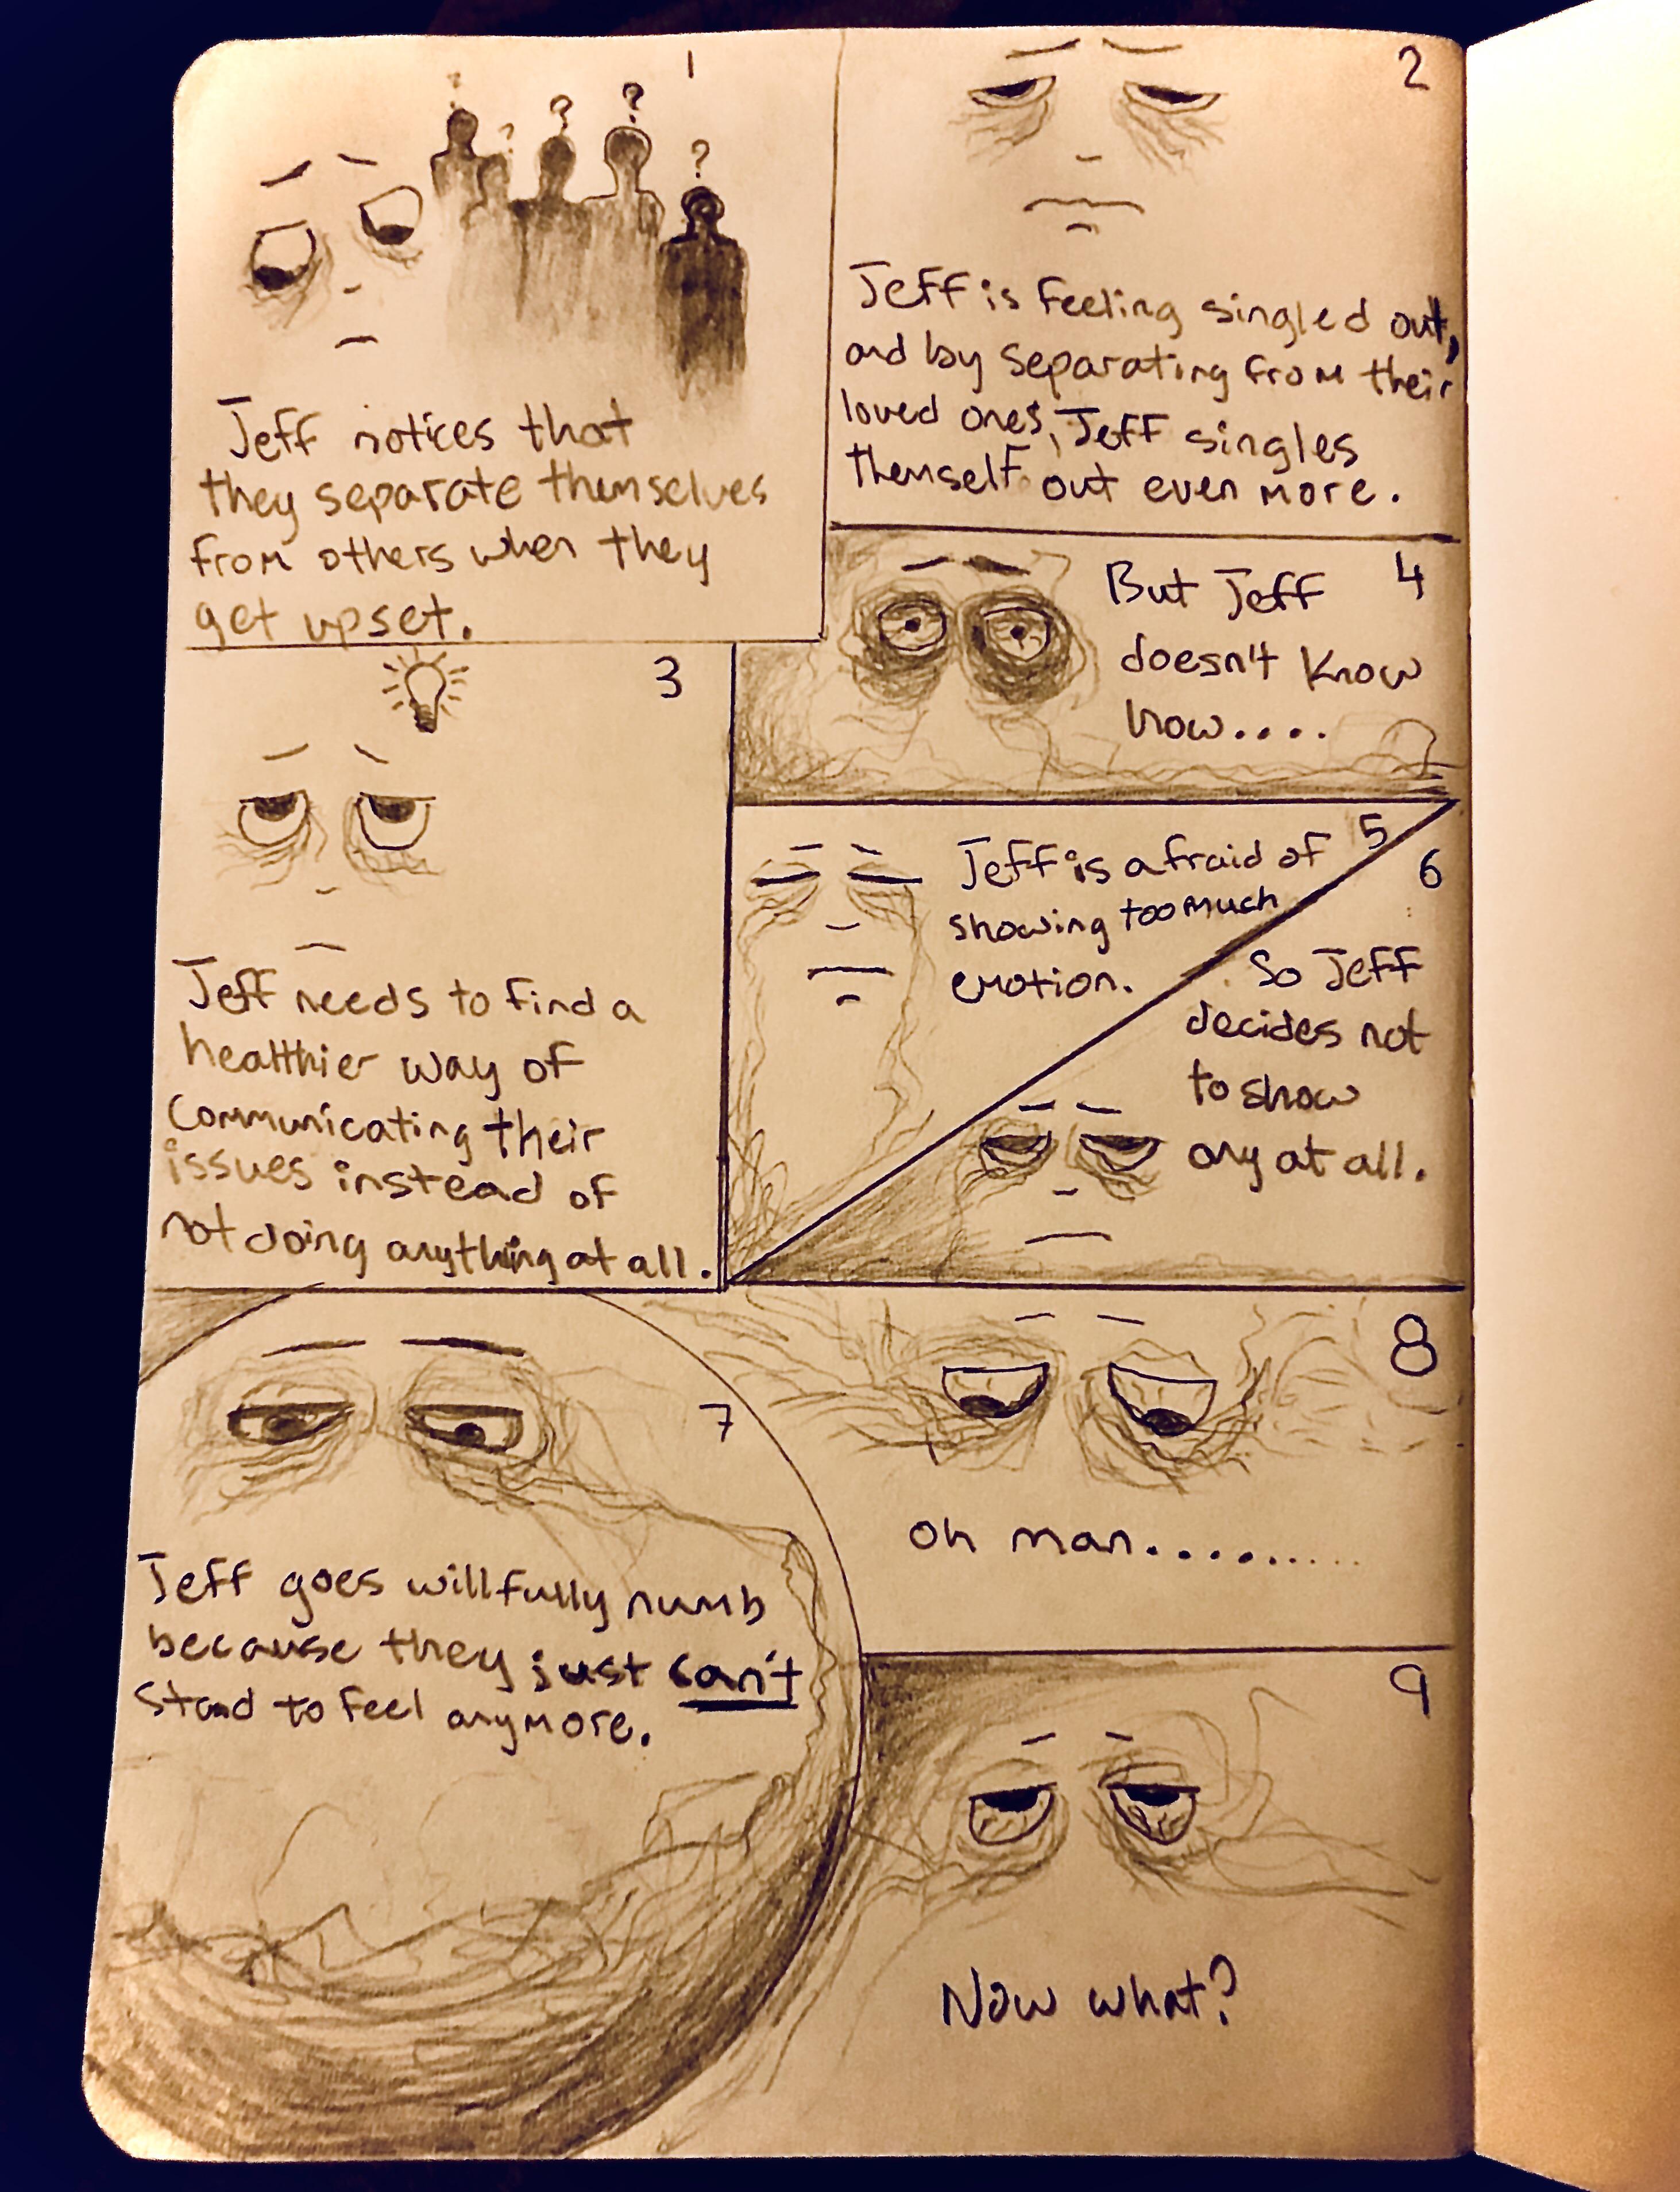 1
? ? ? ? ?
Jeff notices that
they separate themselves
from others when they
get upset.
2
Jeff is feeling singled out,
and by separating from their
loved ones, Jeff singles
themself out even more.
3
Jeff needs to find a
healthier way of
communicating their
issues instead of
not doing anything at all.
4
But Jeff
doesn't know
how....
5
Jeff is afraid of
showing too much
emotion.
6
So Jeff
decides not
to show
any at all.
7
Jeff goes willfully numb
because they just can't
stand to feel anymore.
8
oh man..........
9
Now what?